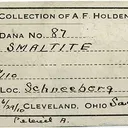 COLLECTION OF A F HOLDEN
DANA NO. 87
SMALTITE
/110
LOC. Schneeberg
CLEVELAND, OHIO